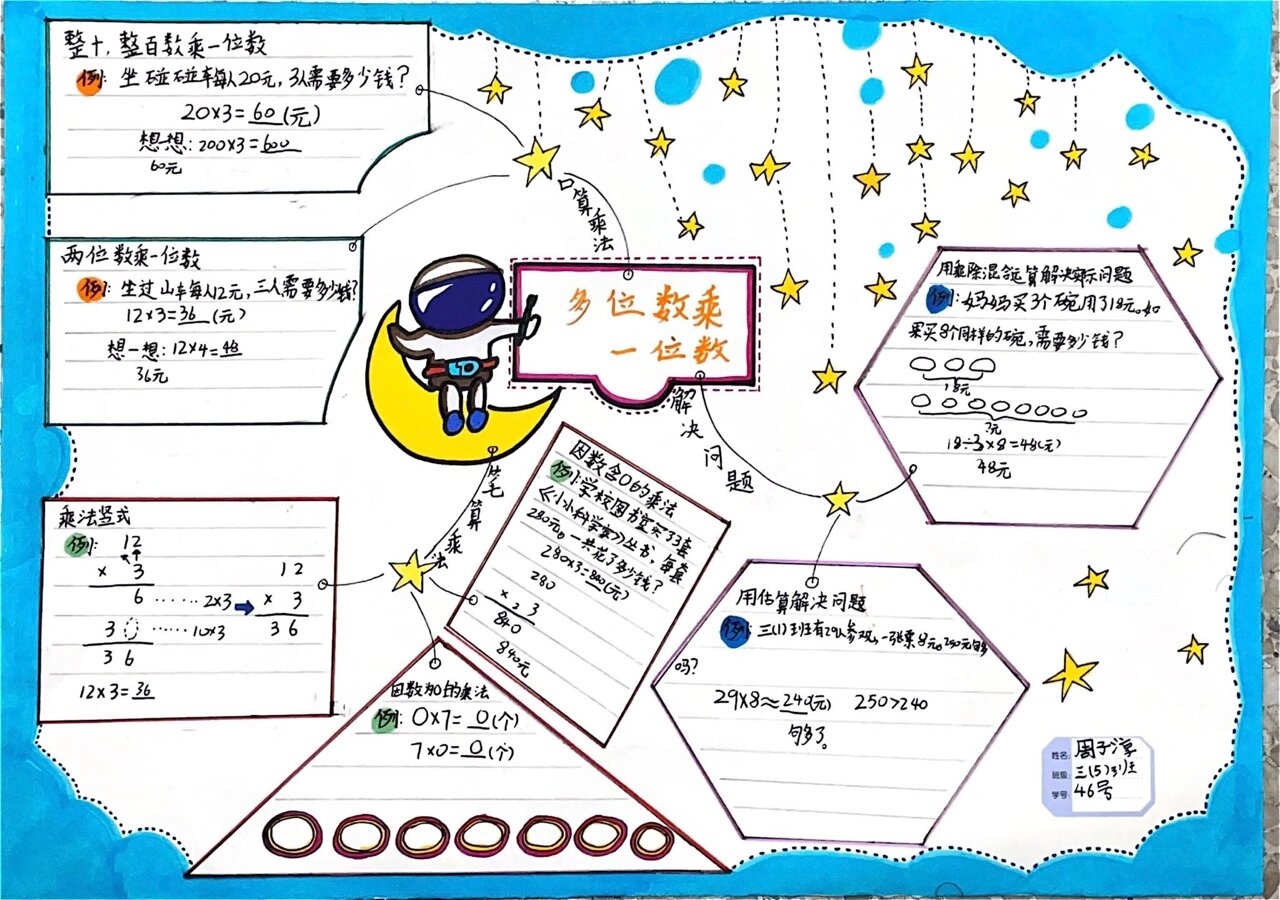 整十、整百数乘一位数
例: 坐碰碰车每人20元, 3人需要多少钱?
20×3=60(元)
想一想: 200×3=600
60元
口算乘法
两位数乘一位数
例: 坐过山车每人12元, 三人需要多少钱?
12×3=36(元)
想一想: 12×4=48
36元
多位数乘
一位数
解决问题
用乘除混合运算解决实际问题
例: 妈妈买3个碗用了18元。如
果买8个同样的碗, 需要多少钱?
18元
?元
18÷3×8=48(元)
48元
笔算乘法
乘法竖式
例: 12
× 3
6 ······ 2×3
3 0 ······ 10×3
3 6
12
× 3
3 6
12×3=36
因数含0的乘法
例: 学校图书室买了3套
《小小科学家》丛书, 每套
280元。一共花了多少钱?
280×3=840(元)
280
× 2 3
840
840元
因数和0的乘法
例: 0×7=0(个)
7×0=0(个)
用估算解决问题
例: 三(1)班有29人参观, 一张票8元。250元够多
吗?
29×8≈240(元) 250>240
够多了。
姓名: 周子淳
班级: 三(5)班
学号: 46号